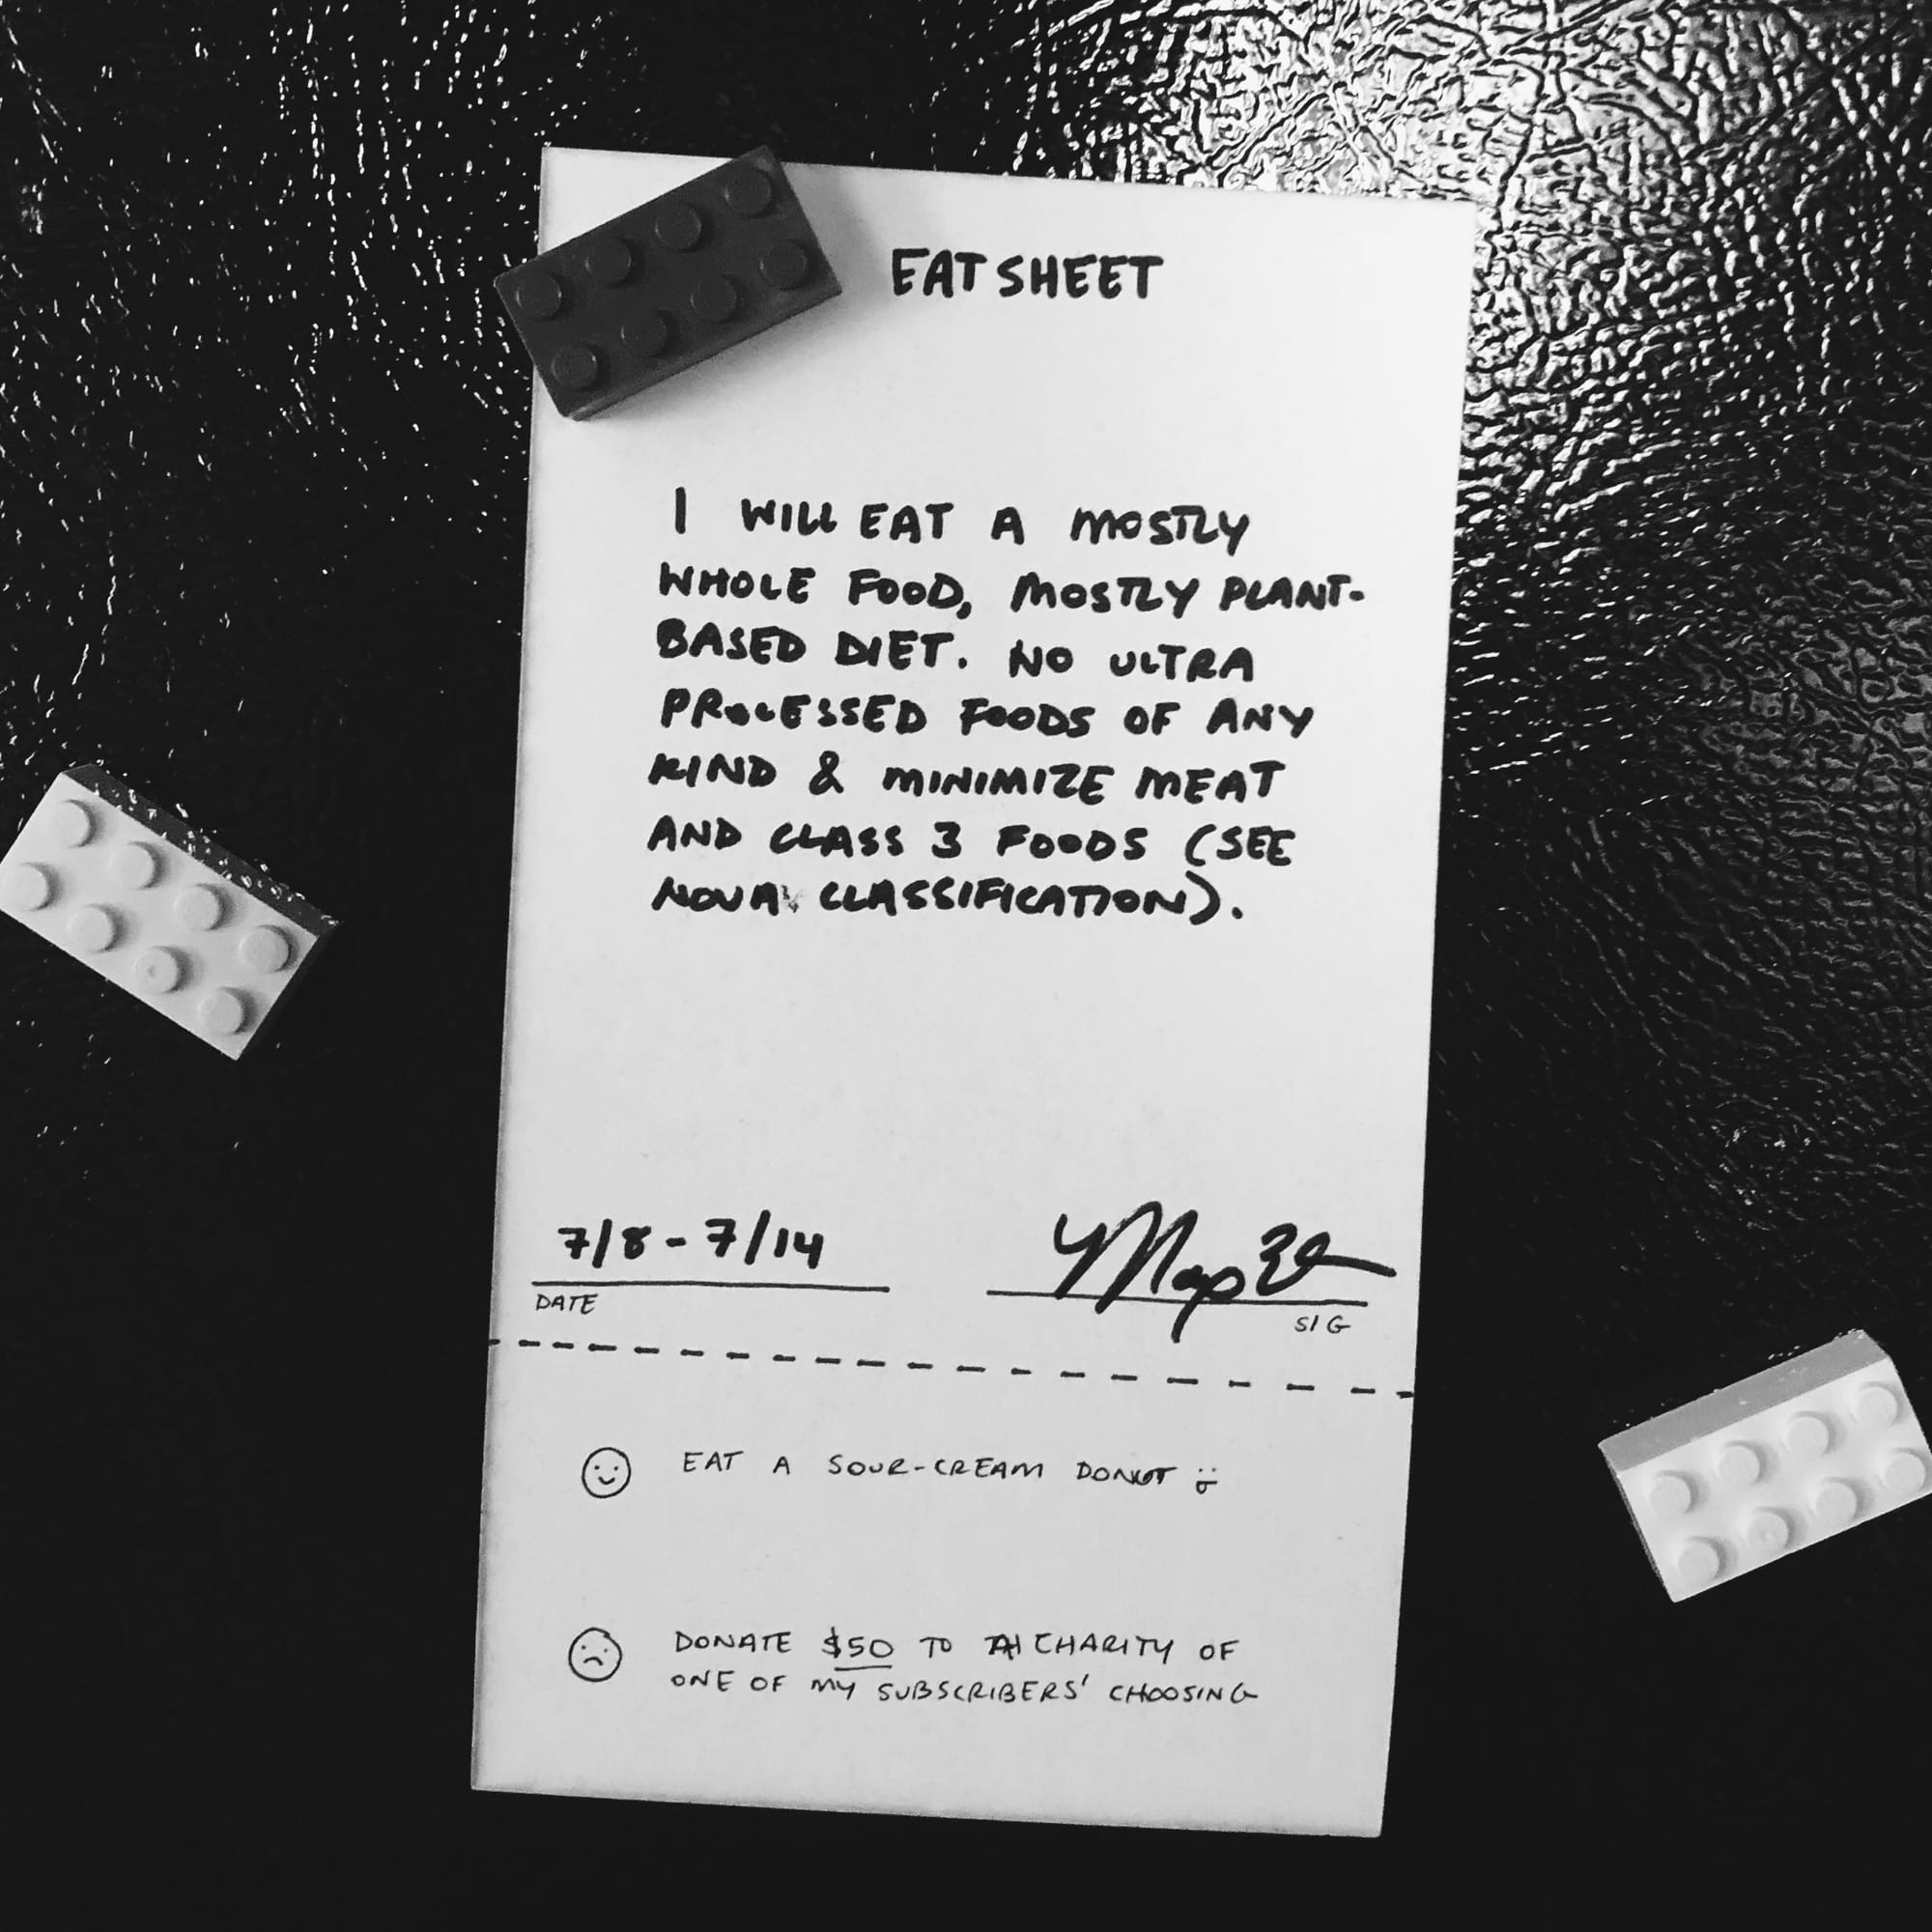 EAT SHEET
I WILL EAT A MOSTLY
WHOLE FOOD, MOSTLY PLANT-
BASED DIET. NO ULTRA
PROCESSED FOODS OF ANY
KIND & MINIMIZE MEAT
AND CLASS 3 FOODS (SEE
NOVA CLASSIFICATION).
7/8 - 7/14
DATE
SIG
EAT A SOUR-CREAM DONUT
DONATE $50 TO A CHARITY OF
ONE OF MY SUBSCRIBERS' CHOOSING